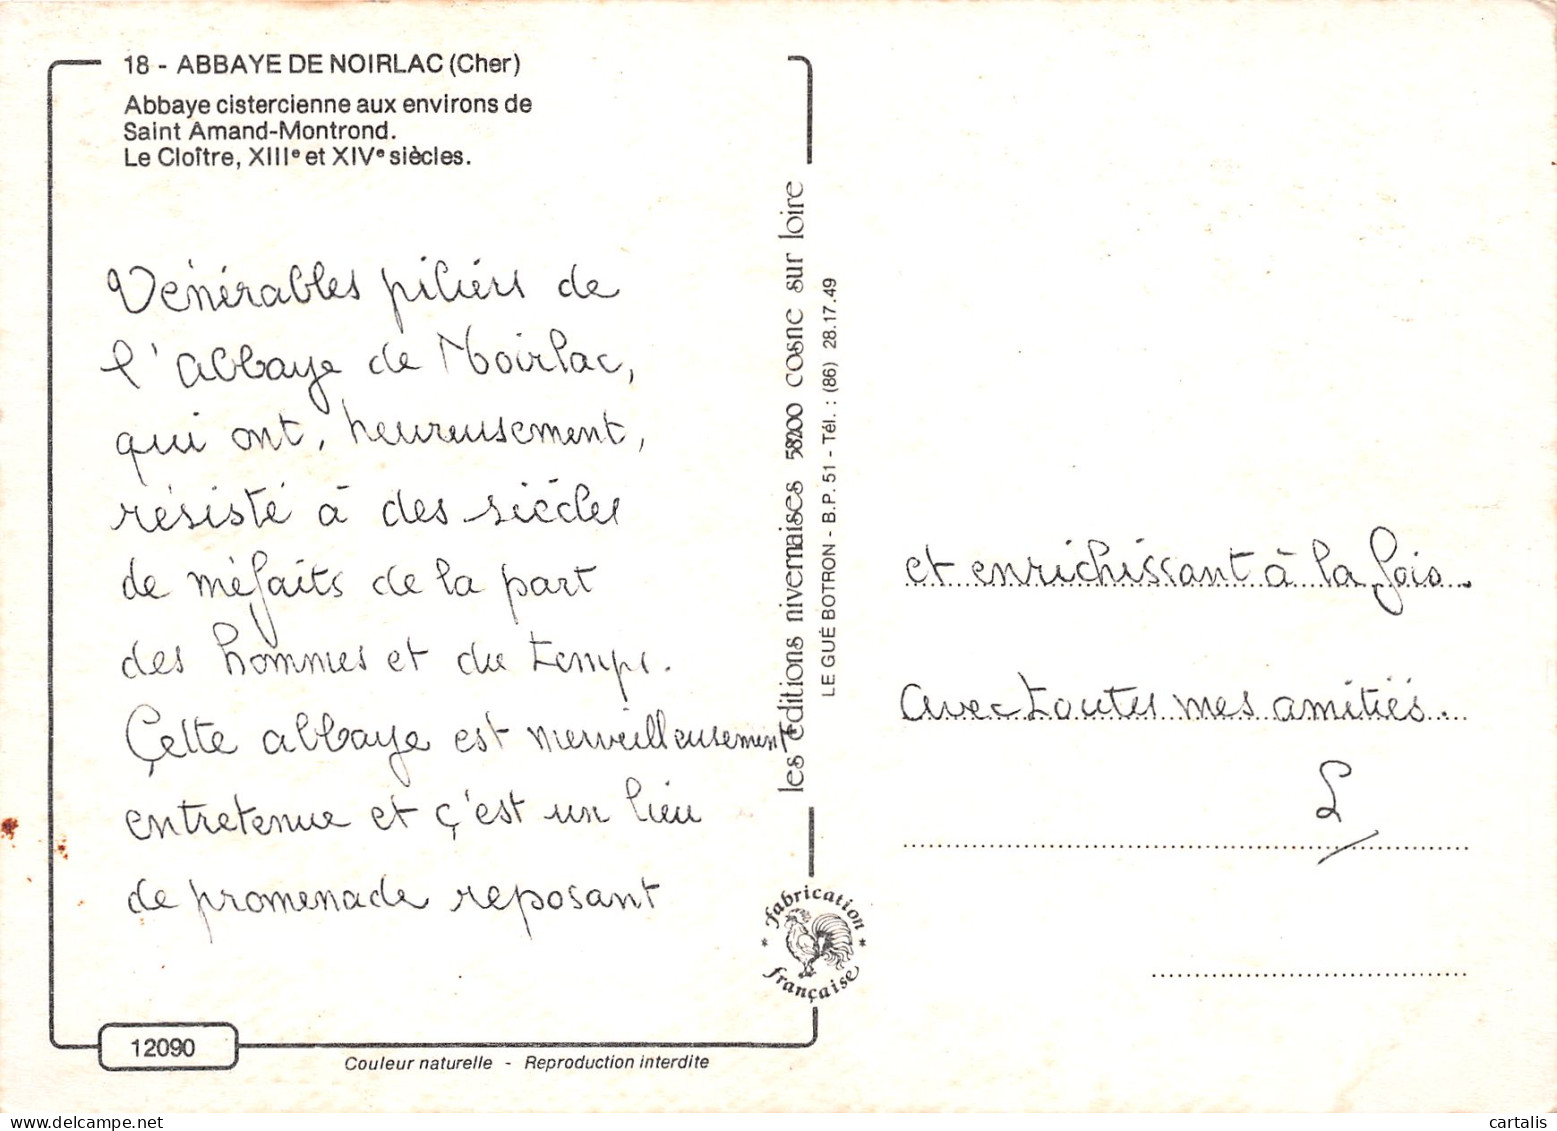 18 - ABBAYE DE NOIRLAC (Cher)
Abbaye cistercienne aux environs de
Saint Amand-Montrond.
Le Cloître, XIIIe et XIVe siècles.
Vénérables piliers de
l'abbaye de Noirlac,
qui ont, heureusement,
résisté à des siècles
de méfaits de la part
des hommes et du temps.
Cette abbaye est merveilleusement
entretenue et ç'est un lieu
de promenade reposant
12090
Couleur naturelle - Reproduction interdite
les éditions nivernaises 58200 cosne sur loire
LE GUÉ BOTRON - B.P. 51 - Tél. : (86) 28.17.49
fabrication
française
et enrichissant à la fois.
avec toutes mes amitiés.
L
cartalis